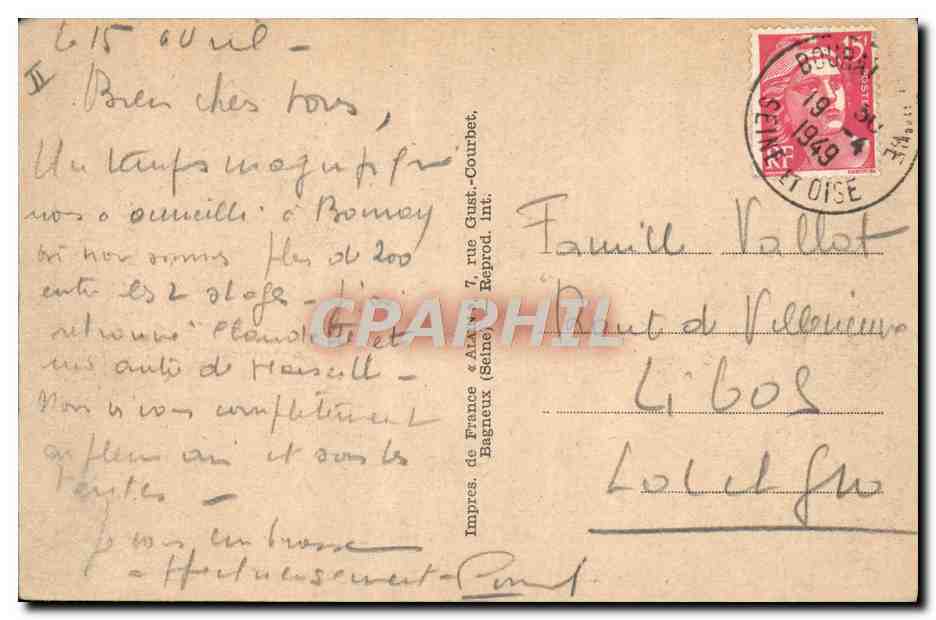 le 15 avril -
II
Bien chers tous,
Un temps magnifique
nous a accueilli à Bouray
où nous sommes plus de 200
entre les 2 stages - J'ai
retrouvé Claudette et
une autre de Marseille -
Nous vivons complètement
en plein air et sous les
tentes -
Je vous embrasse
affectueusement -
Impres. de France « 7, rue Gust.-Courbet,
Bagneux (Seine) Reprod. int.
CPAPHIL
5F
POSTES
RF
BOURAY
19 30
-4
1949
SEINE ET OISE
Famille Vallot
Route de Villeneuve
LIBOS
Lot et Gne